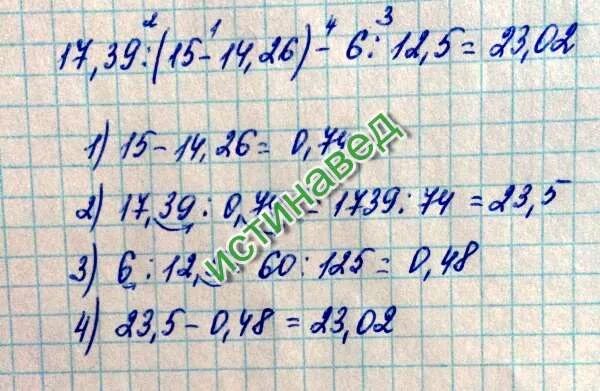 17,39:(15-14,26)-6:12,5=23,02
1) 15-14,26= 0,74
2) 17,39:0,74=1739:74=23,5
3) 6:12,5 60:125=0,48
4) 23,5-0,48=23,02
истинавед